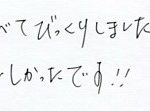 べてびっくりしました
しかったです!!